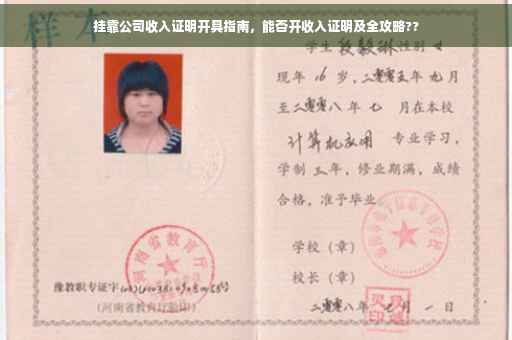 挂靠公司收入证明开具指南，能否开收入证明及全攻略??
样本
学生段毅琳性别女
现年16岁，二零零五年九月
至二零零八年七月在本校
计算机应用 专业学习，
学制三年，修业期满，成绩
合格，准予毕业
学校（章）
校长（章）
二零零八年七月一日
河南省教育厅
豫教职专证字
（河南省教育厅验印）